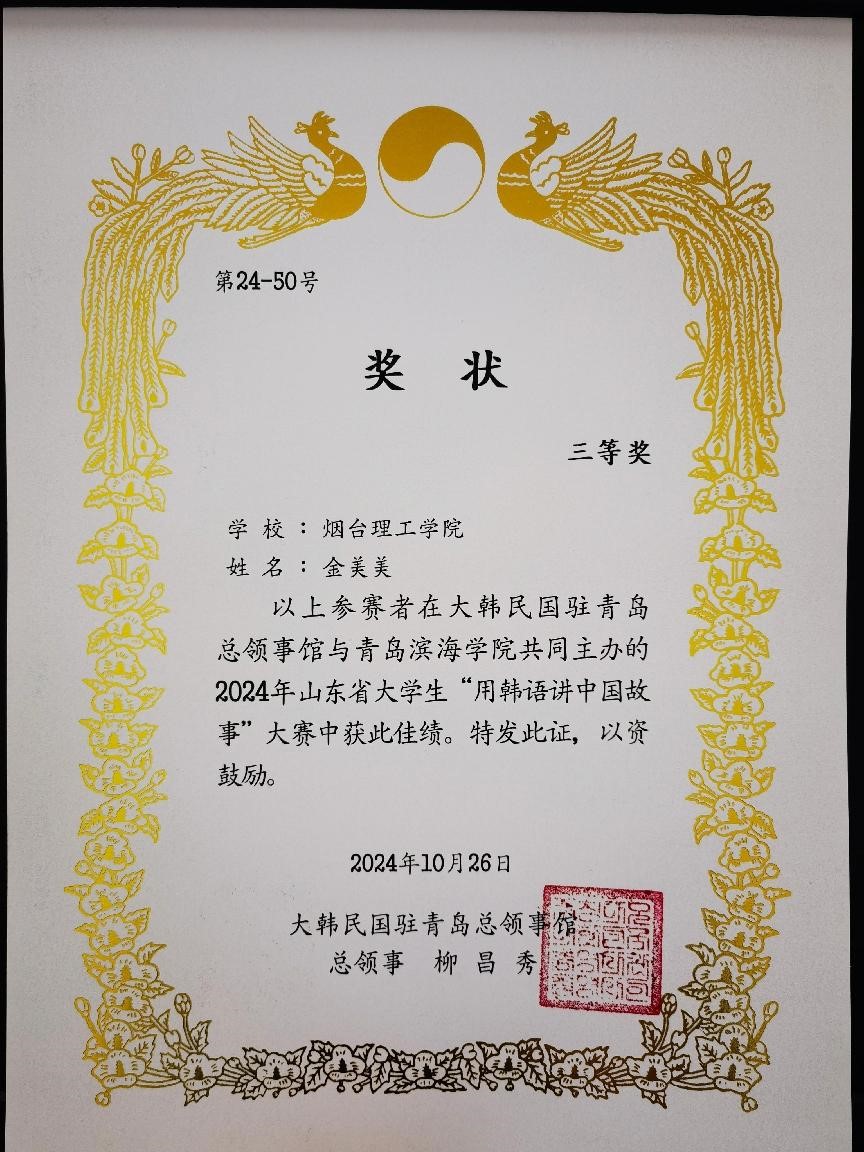 第24-50号
奖 状
三等奖
学 校 ： 烟台理工学院
姓 名 ： 金美美
以上参赛者在大韩民国驻青岛
总领事馆与青岛滨海学院共同主办的
2024年山东省大学生“用韩语讲中国故
事”大赛中获此佳绩。特发此证，以资
鼓励。
2024年10月26日
大韩民国驻青岛总领事馆
总领事 柳 昌 秀